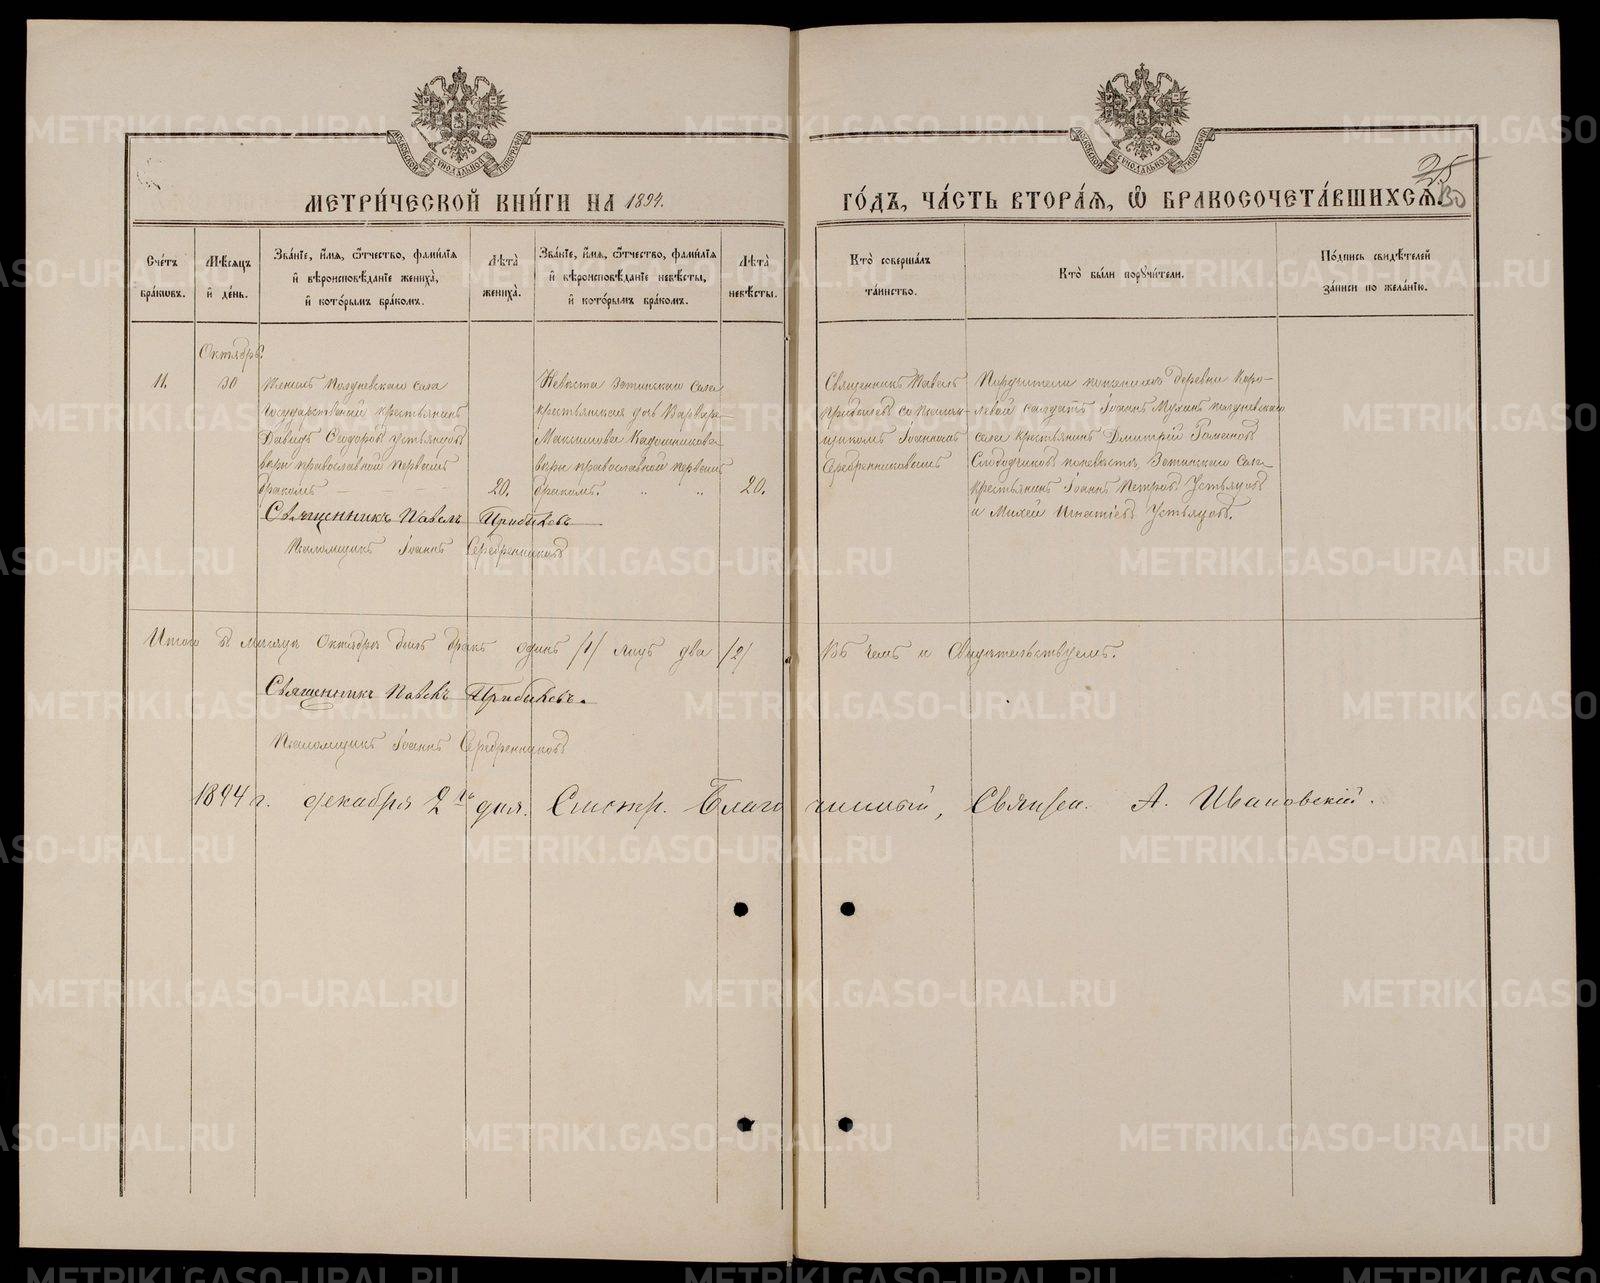 МЕТРИ́ЧЕСКОЙ КНИ́ГИ НА 1894.
ГО́ДЪ, ЧА́СТЬ ВТОРА́Я, Ѽ БРАКОСОЧЕТА́ВШИХСЯ.
25
30
МОСКОВСКОЙ СѴНОДАЛЬНОЙ ТИПОГРАФІИ
МОСКОВСКОЙ СѴНОДАЛЬНОЙ ТИПОГРАФІИ
Сче́тъ
бра́ковъ.
Мѣ́сяцъ
и҆ де́нь.
Зва́нїе, и҆́мя, ѻ҆́тчество, фамѝлїя
и҆ вѣроисповѣ́данїе женихà,
и҆ кото́рымъ бра́комъ.
Лѣ́та
женихà.
Зва́нїе, и҆́мя, ѻ҆́тчество, фамѝлїя
и҆ вѣроисповѣ́данїе невѣ́сты,
и҆ кото́рымъ бра́комъ.
Лѣ́та
невѣ́сты.
Кто̀ соверша́лъ
та́инство.
Кто̀ бы́ли порꙋчи́тели.
По́дпись свидѣ́телей
за́писи по жела́нїю.
Октябрь.
11.
30
Женихъ Полдневскаго села
Государственный крестьянинъ
Давидъ Ѳеодоровъ Устьянцовъ
вѣры православной первымъ
бракомъ — — —
20.
Невѣста
села
крестьянская дочь Варвара
Максимова Кадошникова
вѣры православной первымъ
бракомъ. " "
20.
Священникъ Павелъ
Прибылевъ со Псалом-
щикомъ Іоанномъ
Серебренниковымъ
Поручители по женихѣ деревни Коро-
левой солдатъ Іоаннъ Мухинъ полдневскаго
села крестьянинъ Дмитрій
Слободчиковъ по невѣстѣ
села
крестьянинъ Іоаннъ Петровъ Устьянцовъ
и Михей Игнатіевъ Устьянцовъ.
Священникъ Павелъ
Псаломщикъ Іоаннъ Серебренниковъ
Итого въ мѣсяцѣ Октябрѣ былъ бракъ одинъ /1/ лицъ два /2/
Въ чемъ и Свидѣтельствуемъ.
Священникъ Павелъ
Псаломщикъ Іоаннъ Серебренниковъ
1894 г. декабря 2го дня. Смотр. Благочинный, Священ. А. Ивановскій.
METRIKI.GASO-URAL.RU